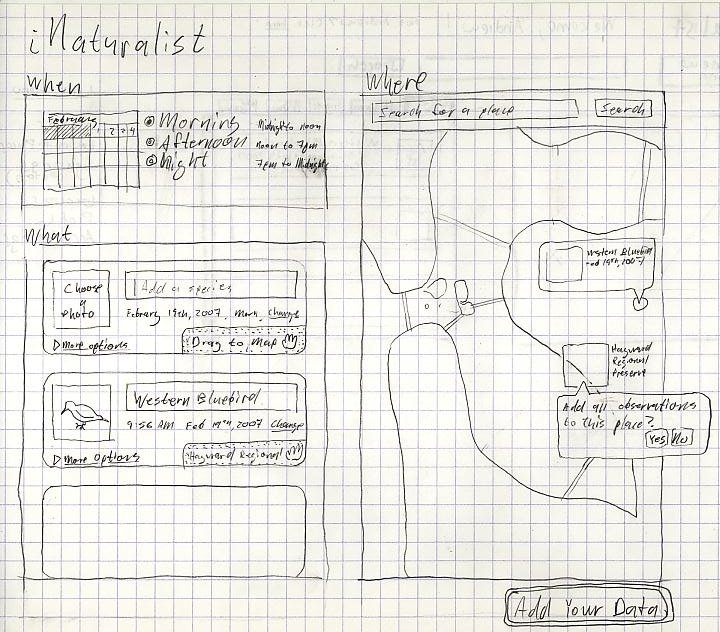 iNaturalist
When
February
1 2 3 4
Morning Midnight to noon
Afternoon noon to 7pm
Night 7pm to Midnight
What
Choose
a
Photo
Add a species
February 19th, 2007, Morn, change
More options
Drag to Map
Western Bluebird
9:56 AM Feb 19th, 2007 Change
More Options
Hayward Regional
Where
Search for a place
Search
Western Bluebird
Feb 19th, 2007
Hayward
Regional
Preserve
Add all observations
to this place?
Yes No
Add Your Data